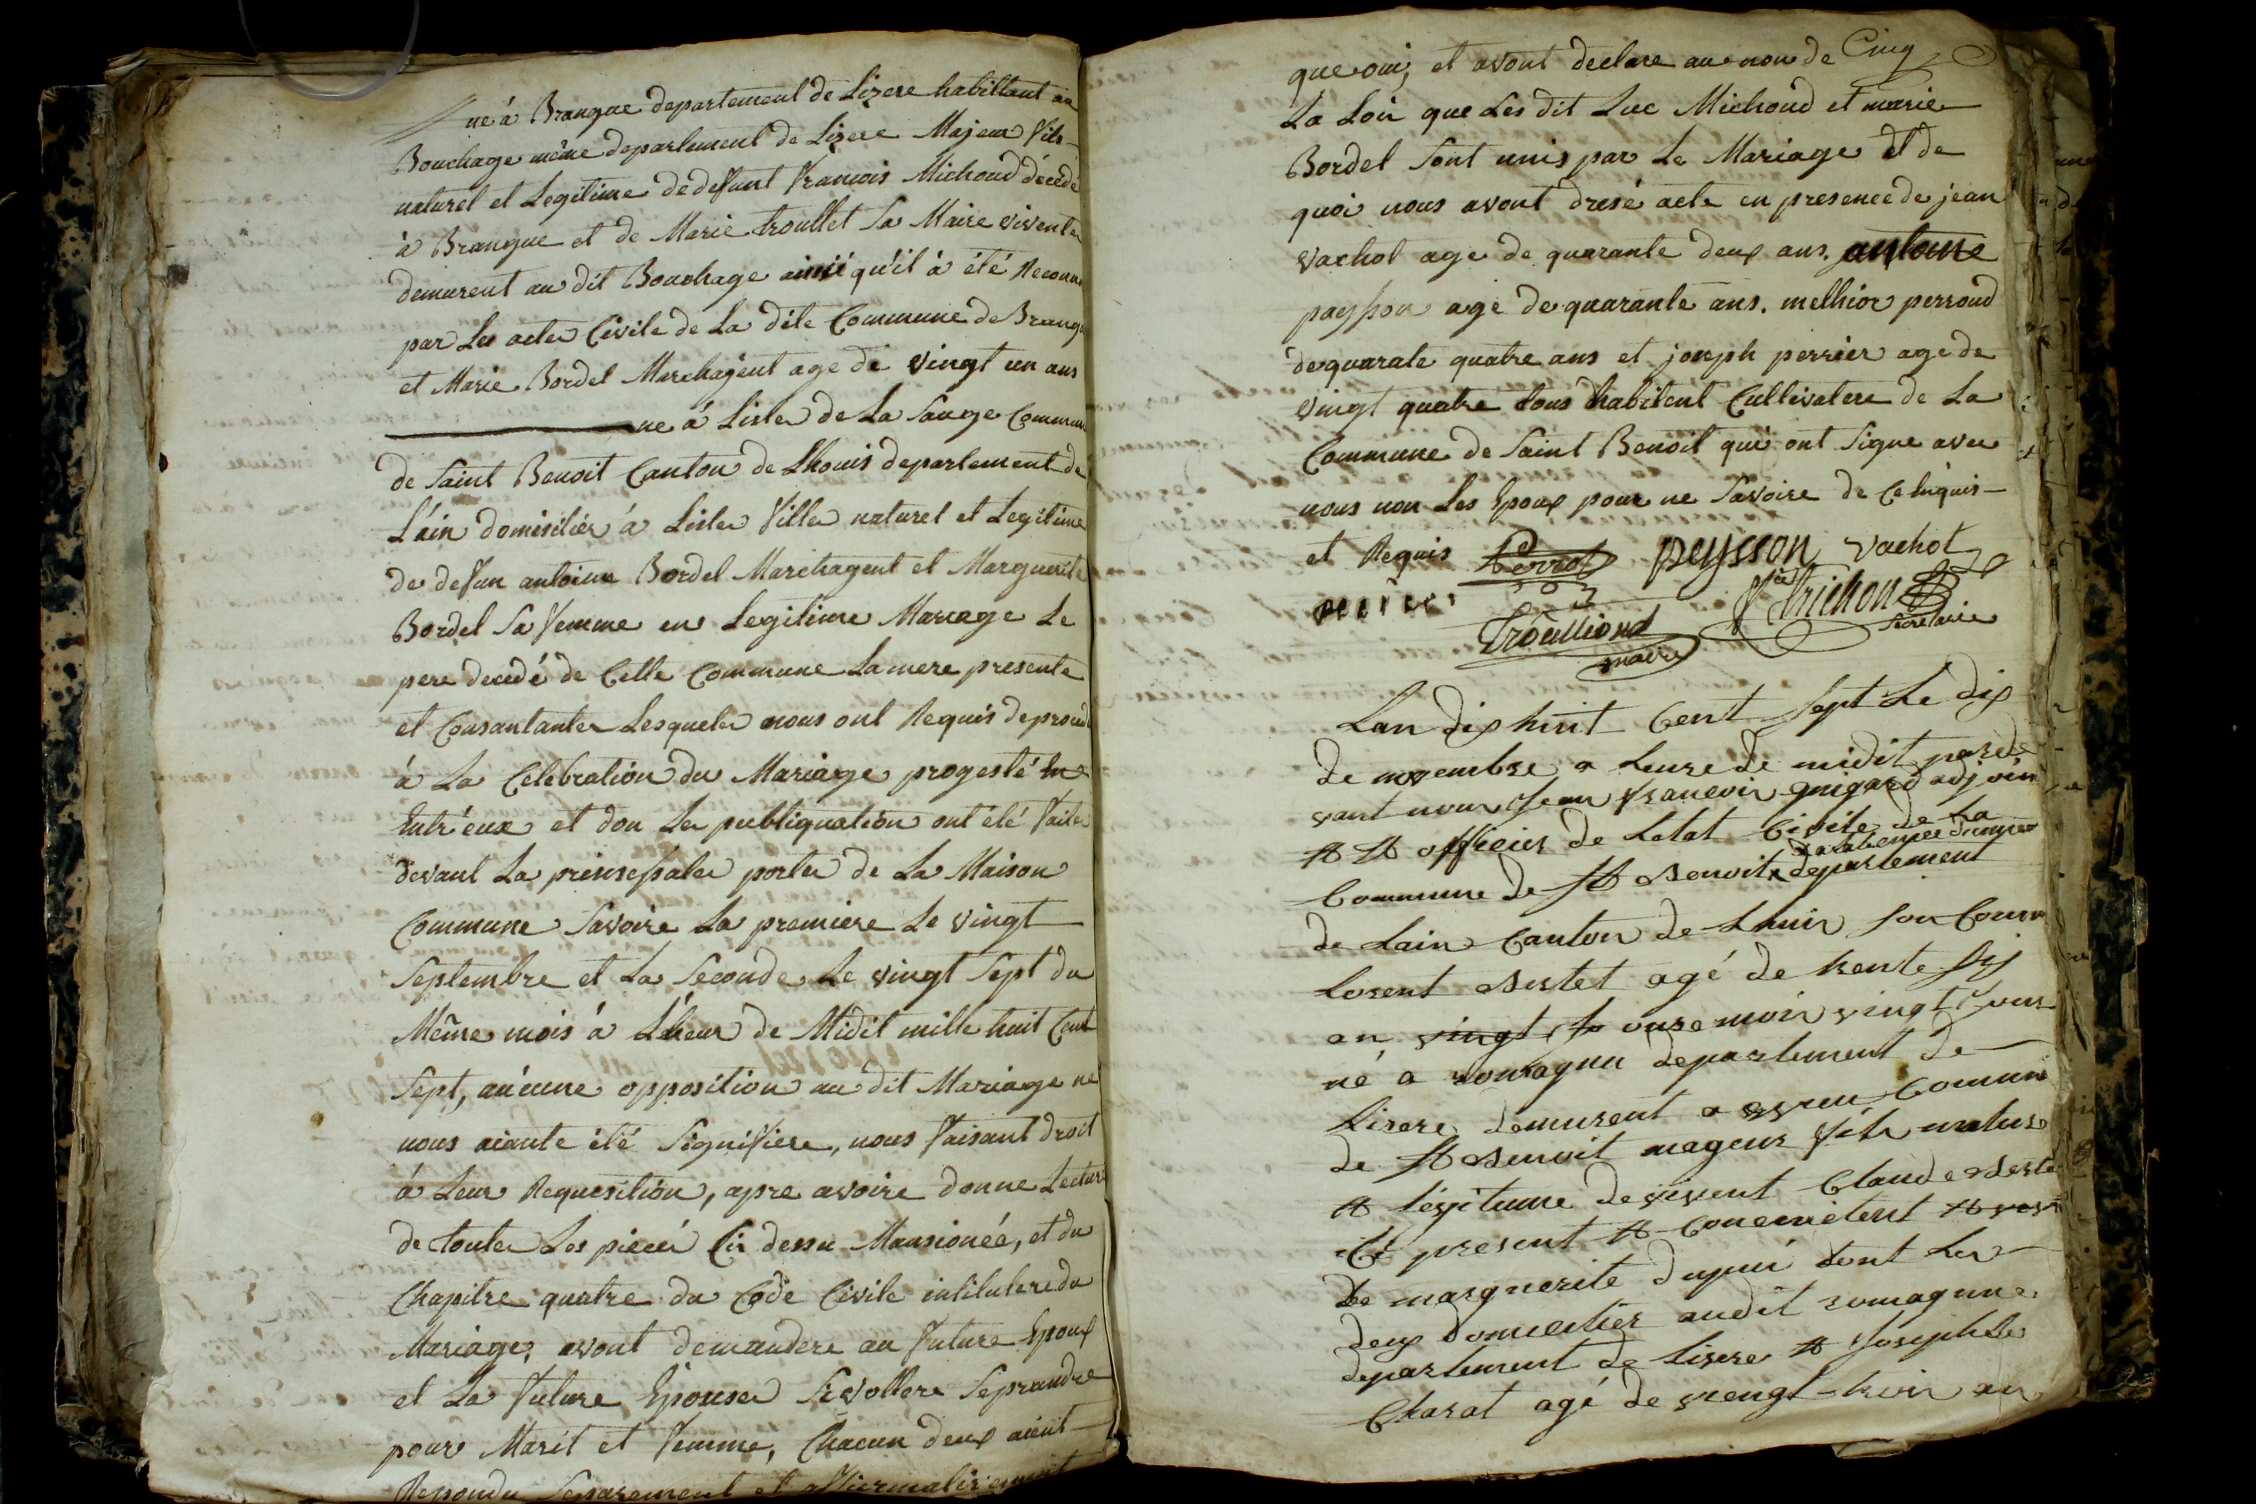 né á Brangue departement de Lizere habittant au
Bouchage même departement de Lizere Majeur Fils
naturel et Legitime de defunt François Michoud décédé
à Brangue et de Marie troullet Sa Maire vivente
demurent au dit Bouchage ainsi qu'il à été Reconnu
par Les actes Civile de La dite Commune de Brangue
et Marie Bordel Marchagent age de vingt un ans
ne á Lisle de La Sauge Commune
de Saint Benoit Canton de Lhouis departement de
L'ain domisiliér á Lisle Fille naturel et Legitime
de defun antoine Bordel Marchagent et Marguerite
Bordel Sa Femme en Legitime Mariage Le
pere decedé de Cette Commune La mere presente
et Consantante Lesquele nous ont Requis de proude
à La Celebration du Mariage progesté En
Entr'eux et don Les publiquation ont été Faite
devant La prinsepale porte de La Maison
Commune Savoire La premiere Le vingt
Septembre et La Seconde Le vingt Sept du
Même mois á L'heur de Midit mille huit Cent
Sept, aucune opposition au dit Mariage ne
nous aiante été Signifiere, nous Faisant droit
á Leur Requesition, apre avoire donne Lecture
de toute Les pieces Ci dessu Mansionéé, et du
Chapitre quatre du Code Civile intitulere du
Mariage, avont demandere au Future Epoux
et La Future Epouse Se vollere Se prandre
pour Marit et Femme, Chacun deux aient
Repondu Separement et affirmativement
que oui, et avont declare au non de Cinq
La Loir que Les dit Luc Michoud et marie
Bordel Sont unis par Le Mariage et de
quoi nous avont dresé acte en presence de jean
vachot age de quarante deux ans. antoine
paysson age de quarante ans. melhior perroud
de quarate quatre ans et joseph perrier age de
vingt quatre tous habitent Cultivatere de La
Commune de Saint Benoit qui ont Signe avec
nous non Les Epoux pour ne Savoire de Ce Enquis
et Requis Perrod peysson vachot
perrier Trichon
Trouilliond Secretaire
maire
Lan dix huit Cent Sept Le dix
de novembre a Leure de midit parde
vant nous Jean Francoir guigard adjoin
et officier de Letat Civile de La
Commune de St Benoit departement
de Lain Canton de Lhuis Son Conu
Lorent Bertet agé de trente six
an vingt onse moir vingt Jour
né a romagnu departement de
Lisere demurent a Evieu Comune
de St Benoit mageur Fils nature
et légitume de vivent Claude Berte
Ci present et Concentent
De marguerite dupui tont Les
deux domicilier audit romagnue
departement de Lisere et Josephte
Charat agé de vengt troir an